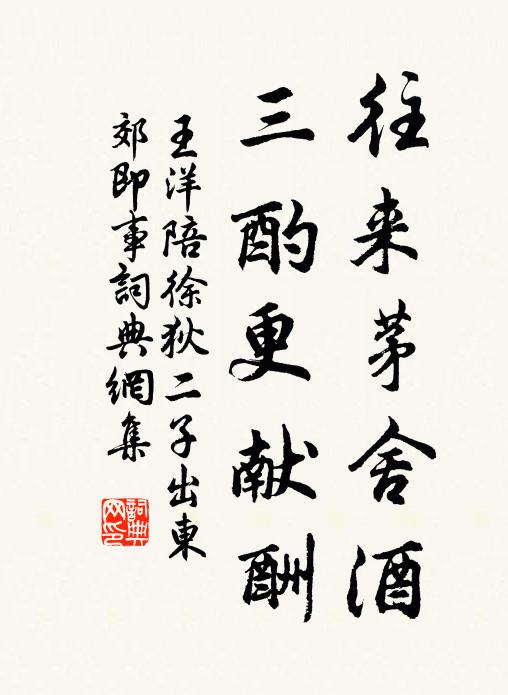 往来茅舍酒
三酌更献酬
王洋陪徐狄二子出東
郊即事詞典網集
詞典网印